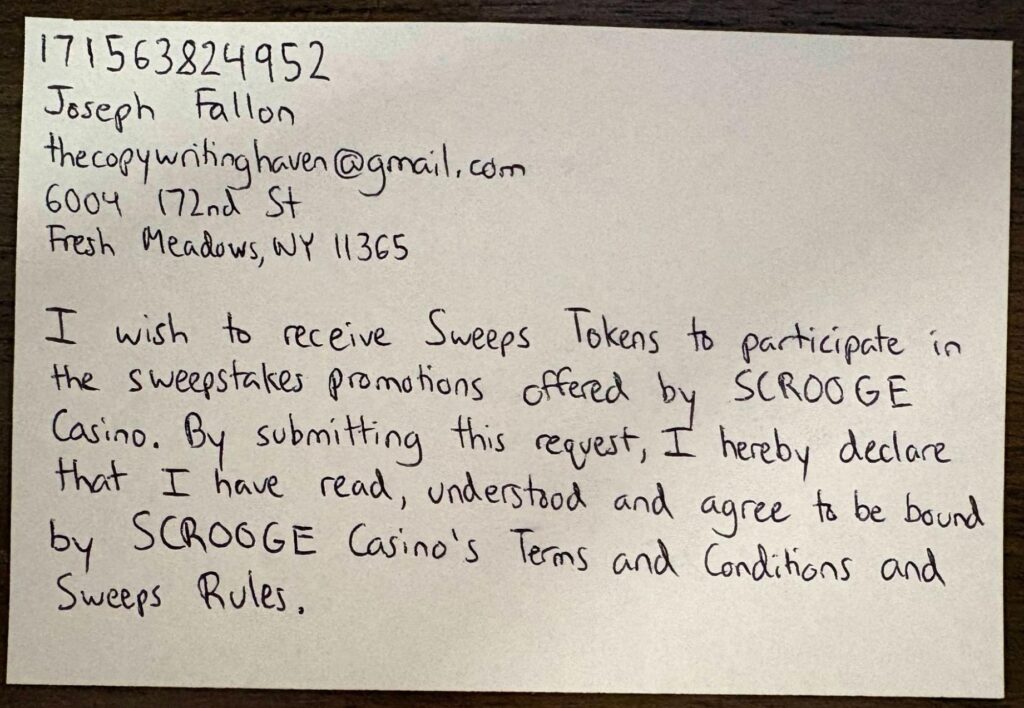 171563824952
Joseph Fallon
thecopywritinghaven@gmail.com
6004 172nd St
Fresh Meadows, NY 11365
I wish to receive Sweeps Tokens to participate in
the sweepstakes promotions offered by SCROOGE
Casino. By submitting this request, I hereby declare
that I have read, understood and agree to be bound
by SCROOGE Casino's Terms and Conditions and
Sweeps Rules.